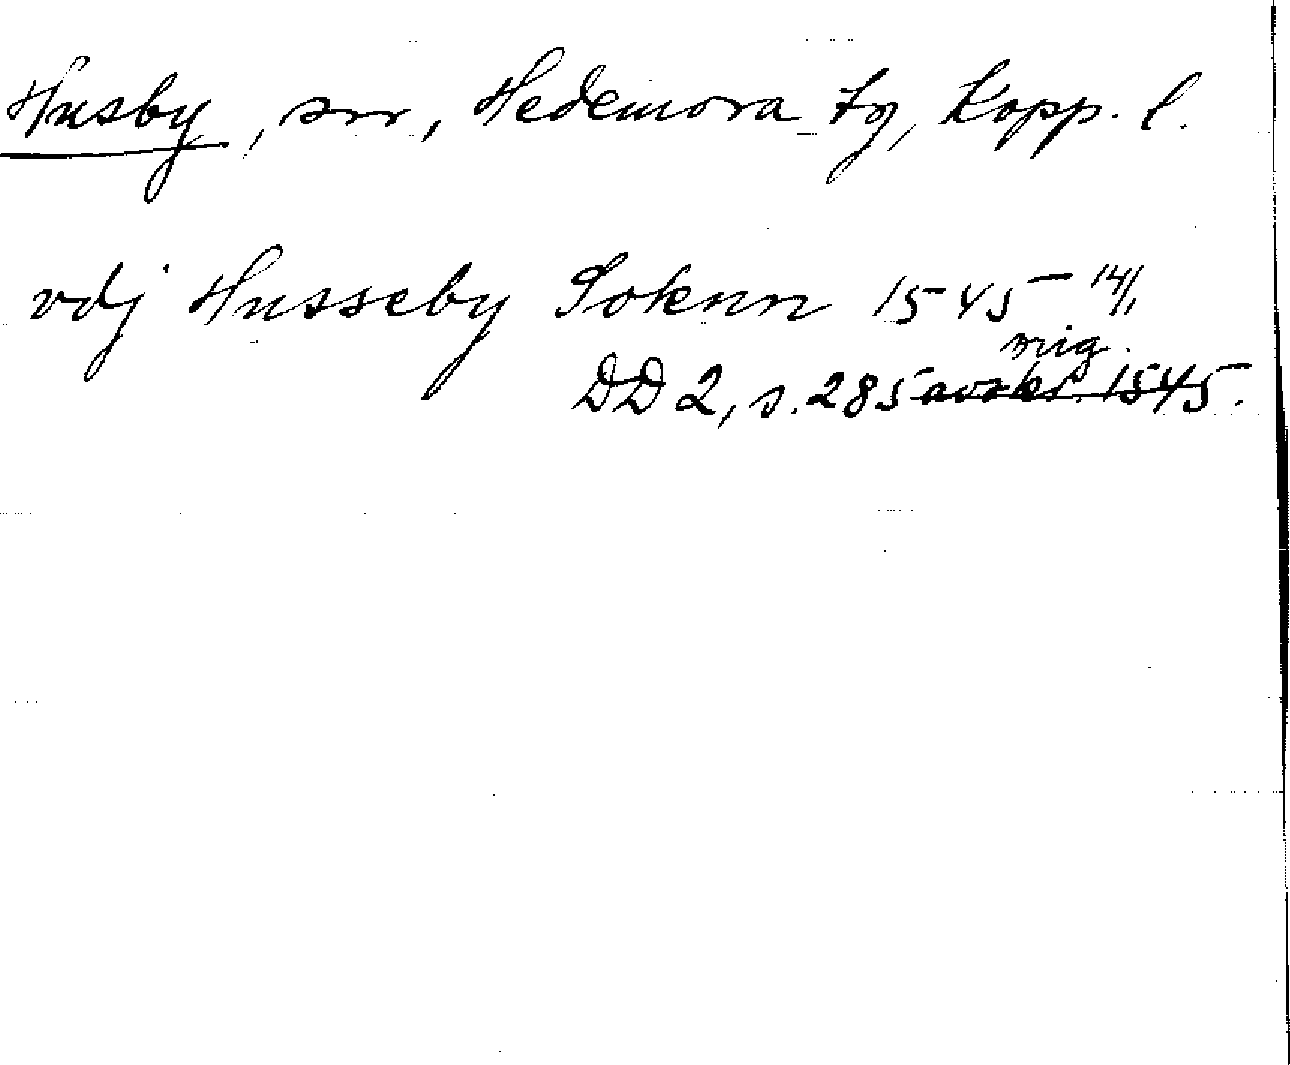 Husby, sn, Hedemora tg, Kopp. l.
vdj Husseby Soknn 1545 14/1
orig.
DD 2, s. 285 avskr. 1545.